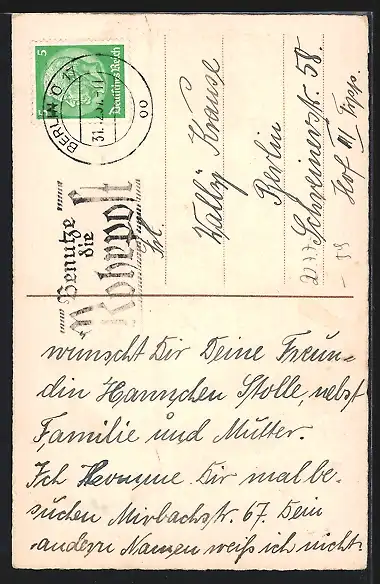 5
Deutsches Reich
BERLIN O 17
31.
Benutze
die
Rohrpost
Frl.
Wally Krause
Berlin
Schreinerstr. 58.
Hof III Trpp.
wünscht Dir Deine Freun-
din Hannchen Stolle, nebst
Familie und Mutter.
Ich komme Dir mal be-
suchen Mirbachstr. 67. Dein
andern Namen weiß ich nicht.